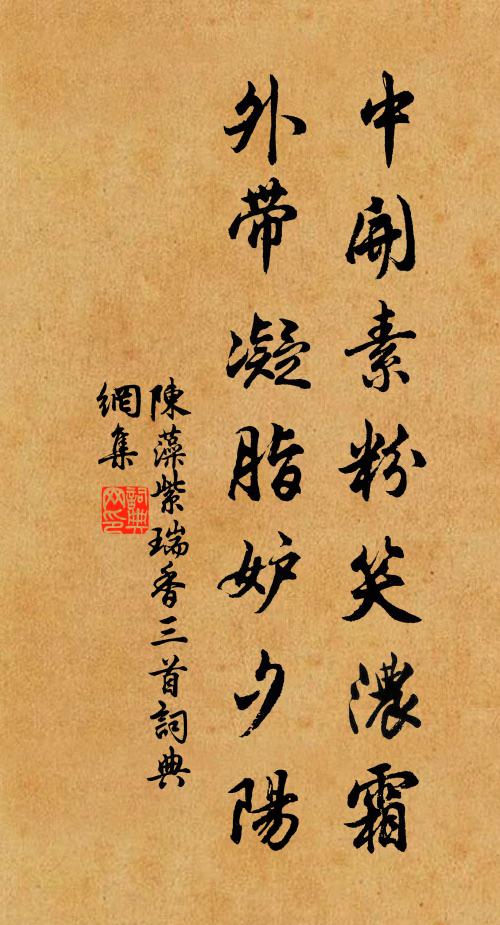 中開素粉笑濃霜
外帶凝脂妒夕陽
陳藻紫瑞香三首詞典
網集
詞典
網印